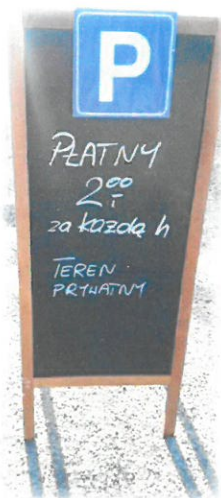 P
PŁATNY
2⁰⁰
za każdą h
TEREN
PRYWATNY